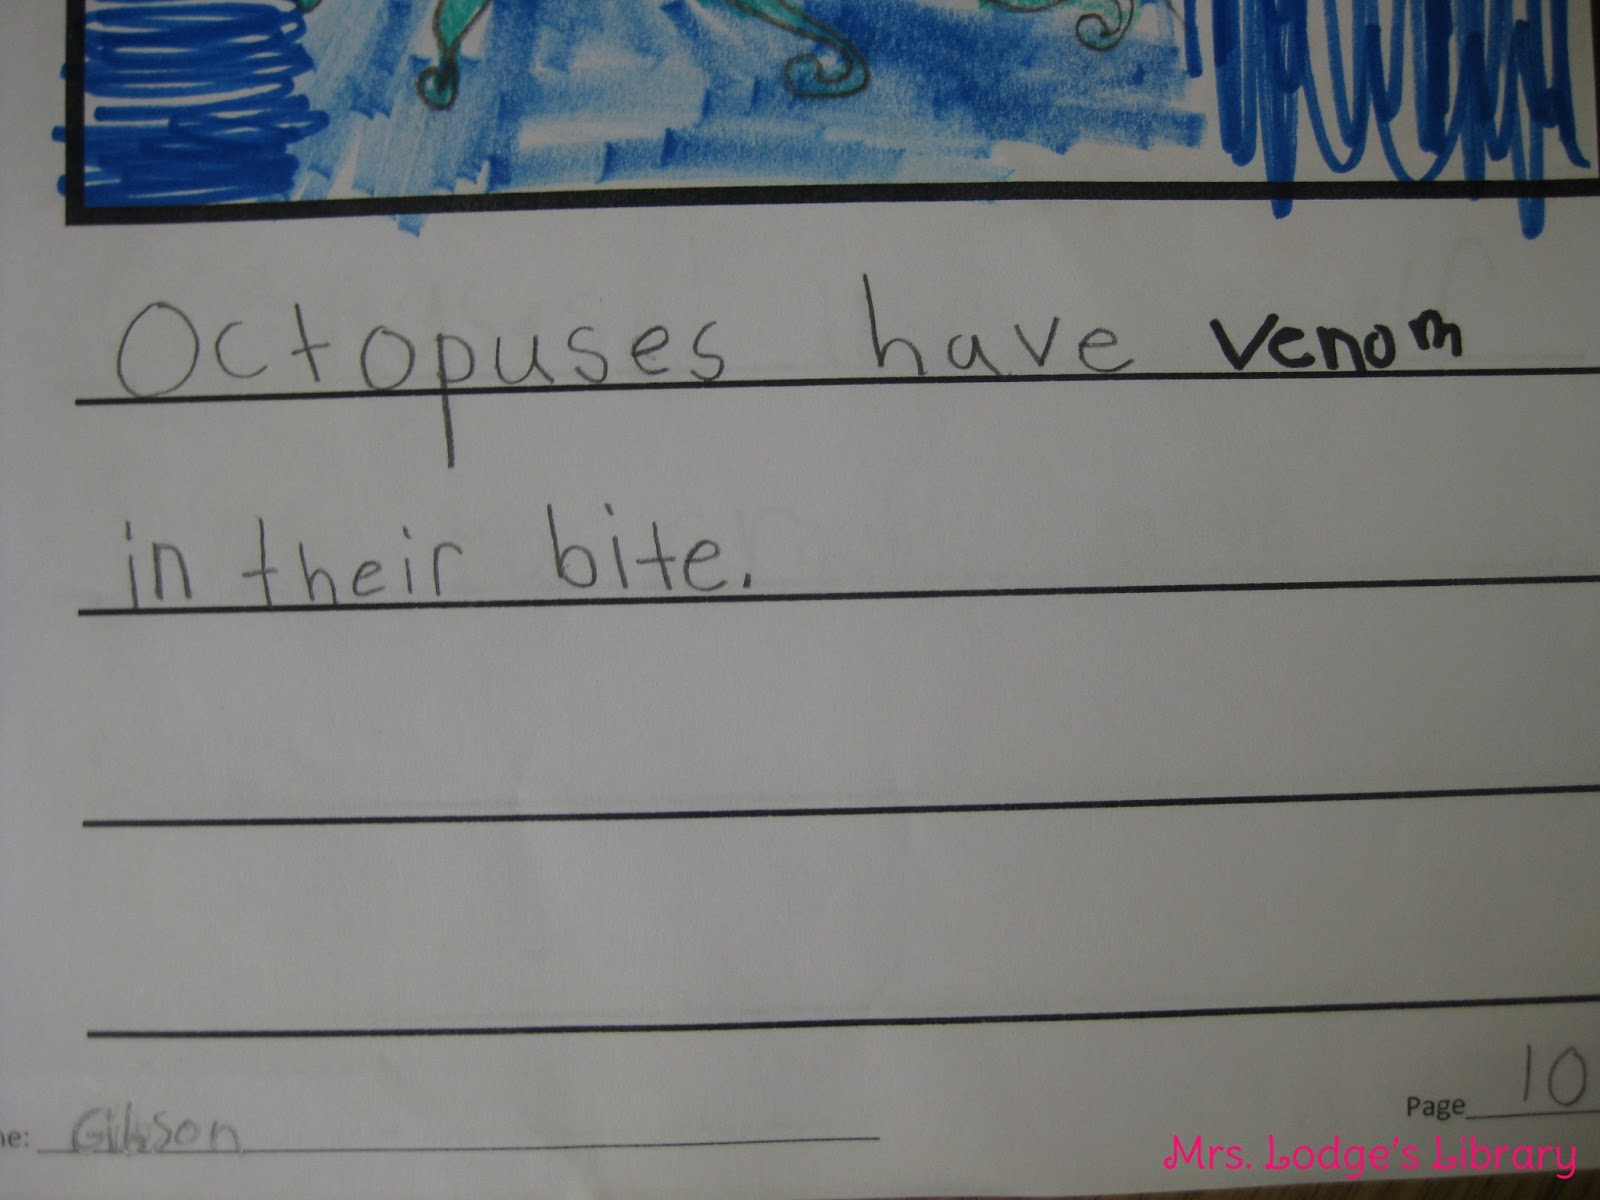 Octopuses have venom
in their bite.
ne: Gibson
Page 10
Mrs. Lodge's Library